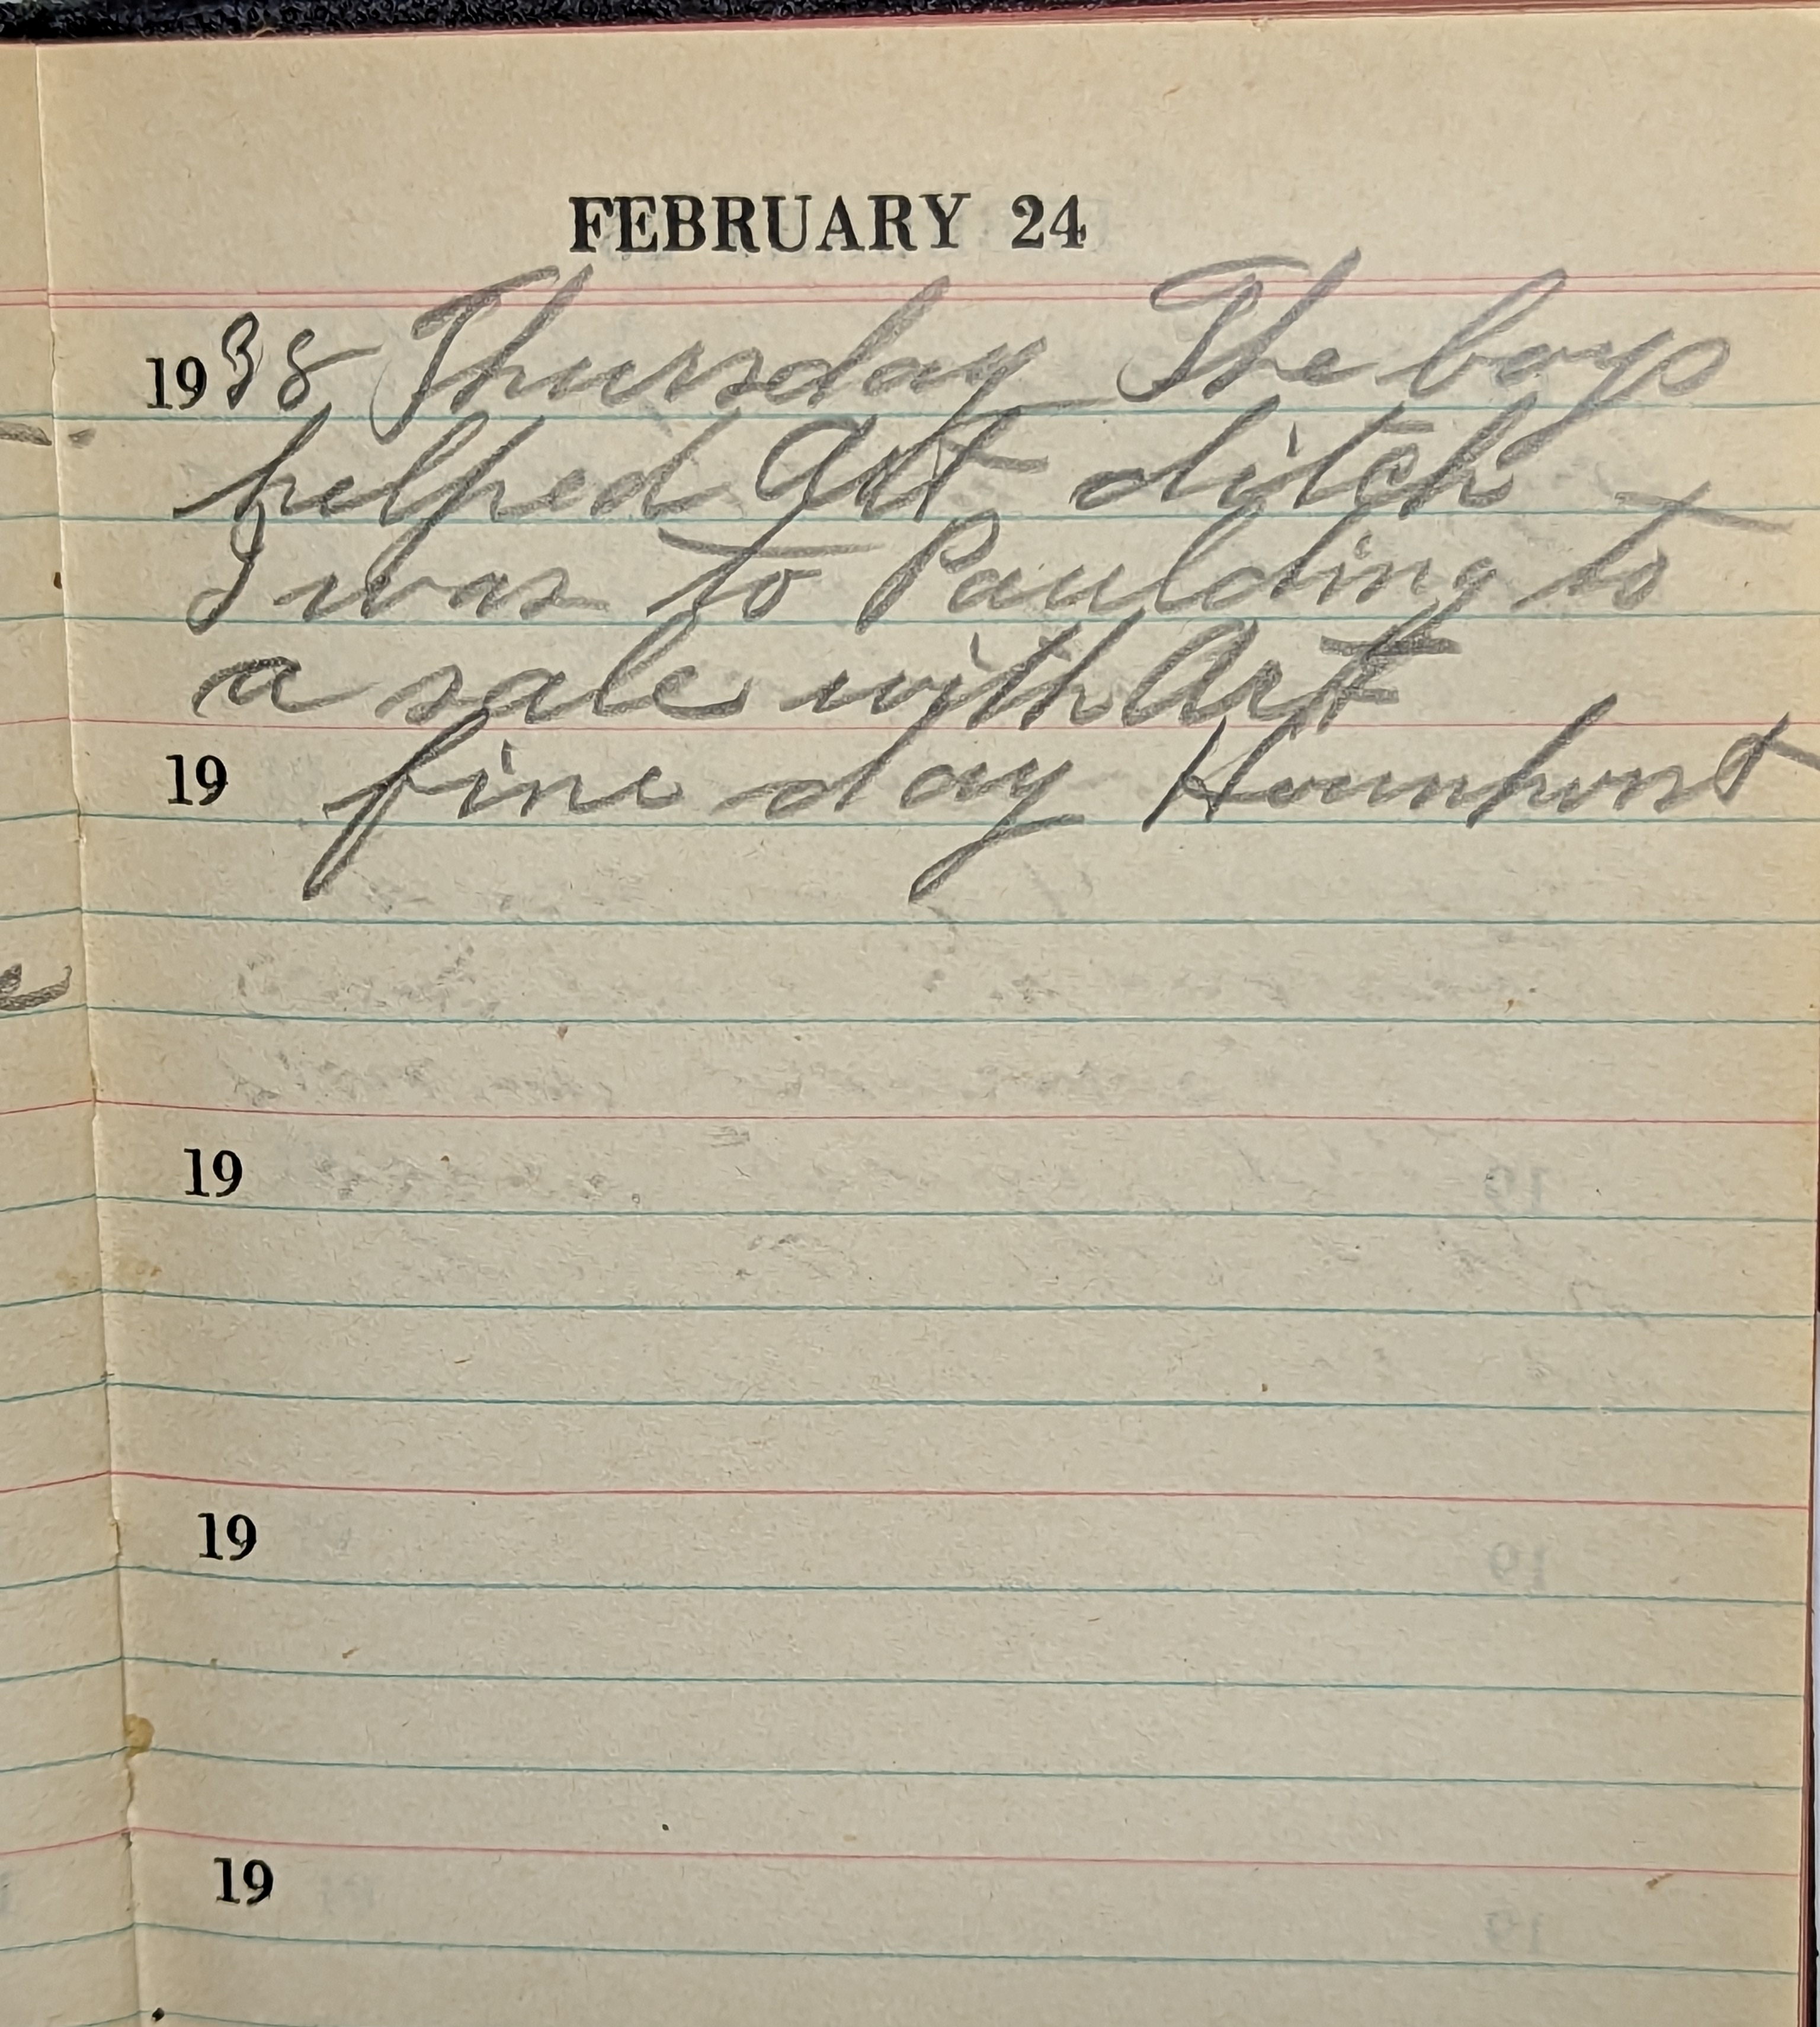 FEBRUARY 24
1938 Thursday The boys
helped Art ditch
I was to Paulding to
a sale with Art
19 fine day
19
19
19